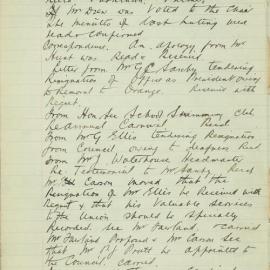 Mr Drew was Voted to the Chair
The minutes of last meeting were
read & confirmed
Correspondence. An apology from Mr
Hunt was Read & Received
Letter from Mr G C Sanby tendering
Resignation of Office as President owing
to Removal to Orange. Received with
Regret.
From Hon Sec School Swimming Club
re Annual Carnival Recd
From Mr G Ellis Tendering Resignation
from Council, owing to deafness Recd
From Mr J Waterhouse Headmaster
re Testimonial to Mr Sanby Recd
Mr Eason moved that the
Resignation of Mr Ellis be Received with
Regret & that his Valuable services
to the Union should be specially
Recorded. sec Mr Fairland. carried
Mr Fairland Proposed & Mr Eason Sec
that Mr Pratt be appointed to
the Council. carried